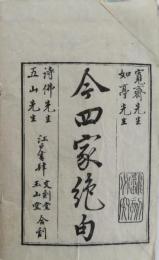 寛齋先生
如亭先生
今四家絶句
詩佛先生
五山先生
江戸書肆
文刻堂
玉山堂
合刻